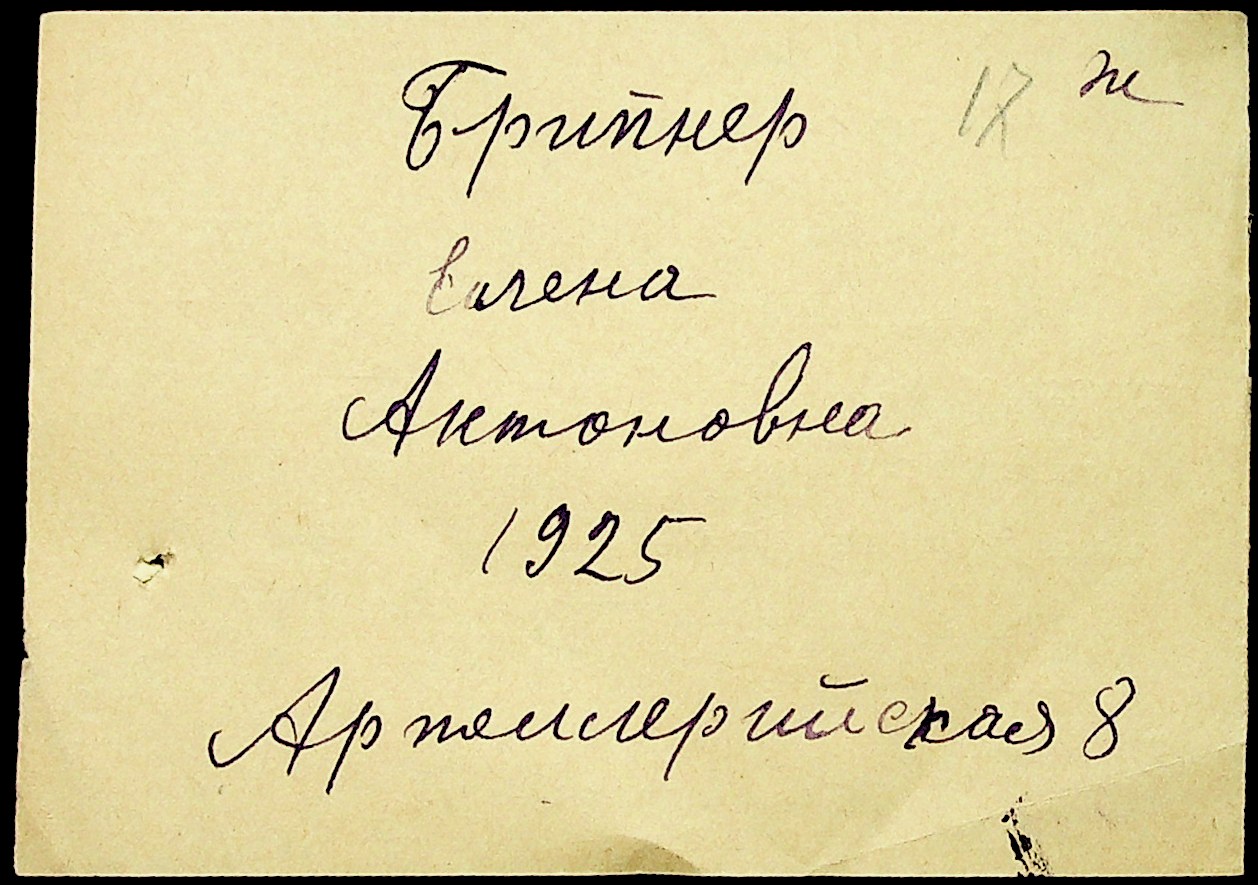 Брипнер 17 ж
Елена
Антоновна
1925
Артиллерийская 8